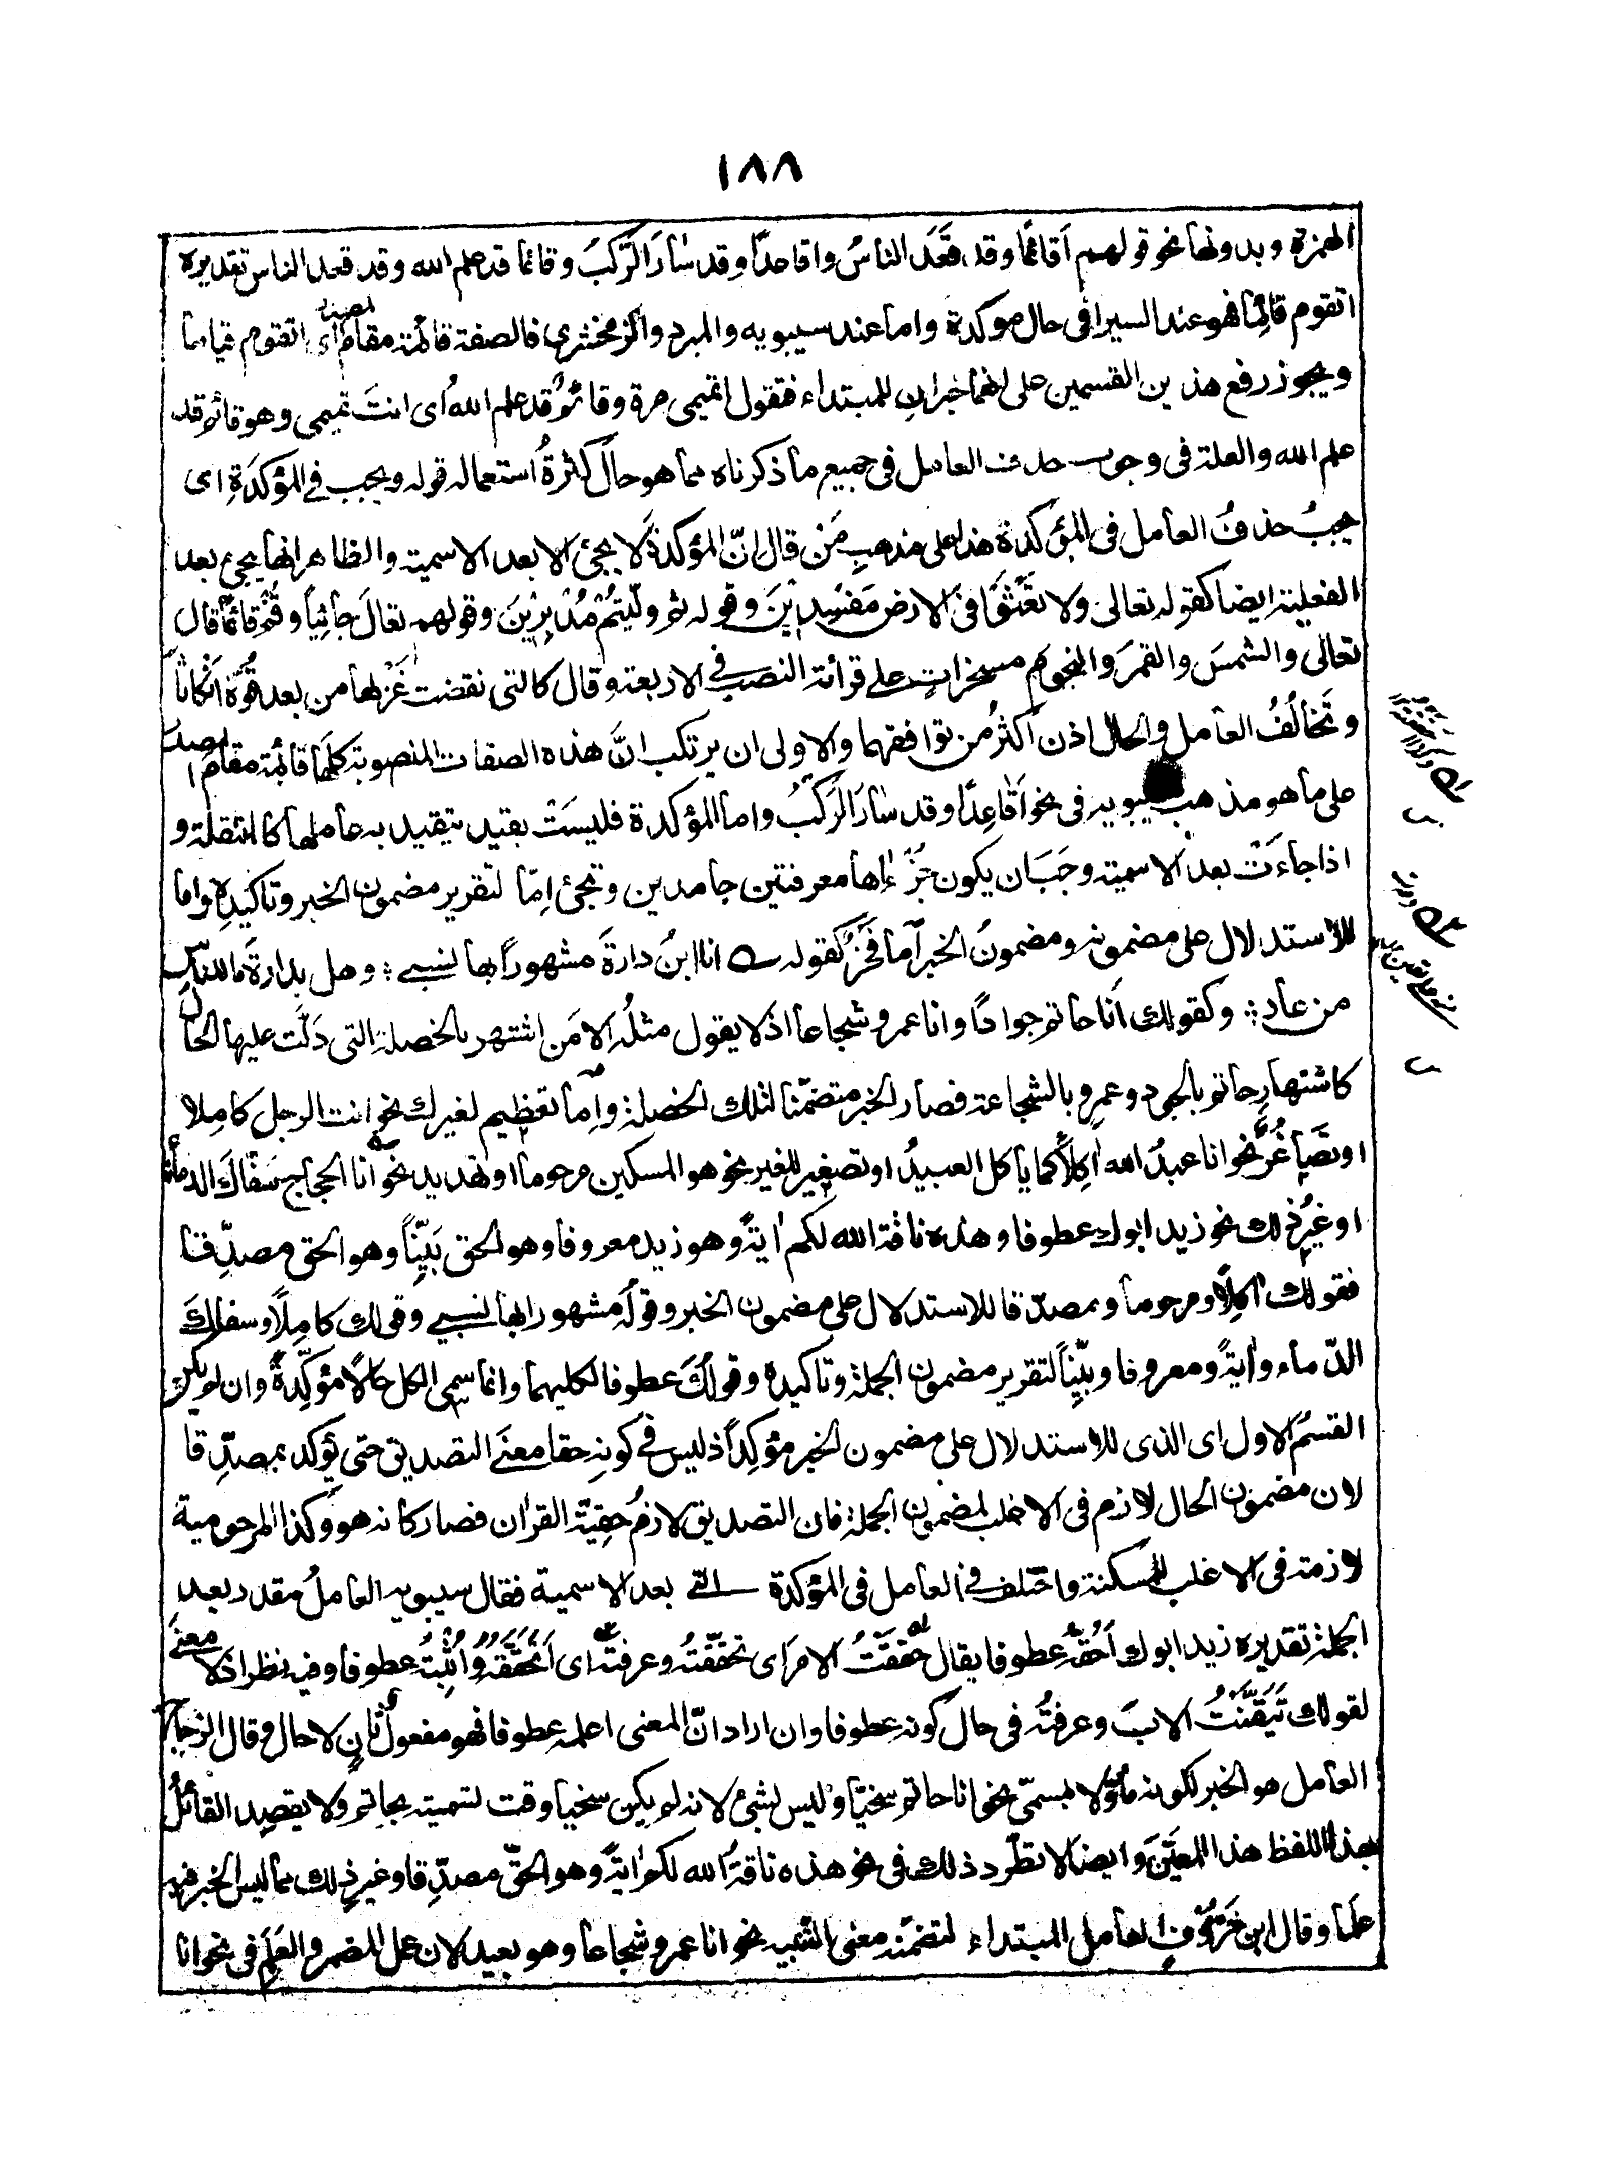 ١٨٨
الهمزة وبدونها نحو قولهم أقائمًا وقد قَعَدَ الناسُ واقاعدًا وقد سٰارَ الرَّكبَ وقائما قد علم الله وقد قعد الناس تقديره
اتقوم قائِمًا فهو عند السيرافى حال موكدة واما عند سيبويه والمبرد والزمخشرى فالصفة قائمة مقام المصدر اى اتقوم قياما
ويجوز رفع هذين القسمين على انهما خبرانِ للمبتداء فتقول اتميمى مرة وقائمٌ قد علم اللهُ اى انتَ تميمى وهو قائم قد
علم الله والعلة فى وجوب حذف العامل فى جميع ما ذكرناه مما هو حالٌ كثرةُ استعماله قوله ويجب فى المؤكدَةِ اى
يجبُ حذفُ العامل فى المؤكدة هذا على مذهبِ مَنْ قال انّ المؤكدة لا يجئ الا بعد الاسمية والظاهر انها يجئ بعد
الفعلية ايضا كقوله تعالى ولا تَعْثَوْا فى الارض مَفسِدينَ وقوله ثم ولّيتُمْ مُدْبِرينَ وقولهم تعالَ جاثِياً وقُمْ قائمًا قال
تعالى والشمسَ والقمرَ والنجوم مسخراتٍ على قرائة النصب فى الاربعة وقال كالتى نقضت غَزْلها من بعد قُوَّة انكاثا
وتَخالُفُ العامل والحال اذن اكثرُ من توافقهما والاولى ان يرتكب انَّ هذه الصفات المنصوبة كلها قائمة مقام المصدر
على ما هو مذهب سيبويه فى نحو اَقٰاعِدًا وقد سٰارَ الرَّكبُ واما المؤكدة فليسَتْ بقيد يتقيد به عاملها كالمنتقلة و
اذا جاءَتْ بعد الاسمية وجَبَ ان يكون جُزءٰاها معرفتين جامدين وتجئ اِمّا لتقرير مضمون الخبر وتاكيدِه واما
للاستدلال على مضمونه ومضمونُ الخبر اما فَخرٌ كقوله انا ابنُ دارةَ مشهوراً بها نسبى وهل بدارةَ ياللناس
من عار وكقولك اَنا حاتم جواداً وانا عمرو شجاعا اذ لا يقول مثلُه الا مَن اشتهر بالخصلة التى دَلَّت عليها الحال
كاشتهارِ حاتم بالجود وعمرٍو بالشجاعة فصار الخبر متضمّنا لتلك الخصلة وامّا تعظيم لغيرك نحو انت الرجل كامِلا
او تَصاغُرٌ نحو انا عبدُ الله اٰكِلاً كما يأكل العبيدُ او تصغير للغير نحو هو المسكين مرحوما او تهديد نحو انا الحجاج سَفّاكَ الدماء
او غيرُ ذلك نحو زيد ابوك عطوفا وهذه ناقة الله لكم اٰيةً وهو زيد معروفا وهو الحق بَيِّناً وهو الحق مصدِّقا
فقولك اٰكِلًا ومرحوما ومصدّقا للاستدلال على مضمون الخبر وقولُه مشهورا بها نسبى وقولك كامِلًا وسفاكَ
الدّماء واٰيةً ومعروفا وبيِّناً لتقرير مضمون الجملة وتاكيده وقولُكَ عطوفا لكليهما وانما سمى الكل حالًا مؤكِّدةً وان لم يكن
القسمُ الاول اى الذى للاستدلال على مضمون الخبر مؤكِداً اذ ليس فى كونِه حقا معنَى التصديق حتى يؤكد بمصدِّقا
لان مضمون الحال لازم فى الاغلب لمضمون الجملة فان التصديق لازمُ حقيّة القراٰن فصار كانه هو وكذا المرحومية
لازمة فى الاغلب للمسكنة واختلف فى العامل فى المؤكدة التى بعد الاسمية فقال سيبويه العاملُ مقدر بعد
الجملة تقديره زيد ابوك اَحُقُّه عطوفا يقال حققتُ الامر اى تحقّقتُه وعرفتُه اى اَتَحَقَّقُه وَاُثبِتُه عطوفا وفيه نظر اذ لا معنَى
لقولك تَيَقَّنْتُ الابَ وعرفتُه فى حال كونه عطوفا وان اراد انّ المعنى اعلمه عطوفا فهو مفعولٌ ثانٍ لا حال وقال الزجاج
العامل هو الخبر لكونه مأوَّلا بمسمّى نحو انا حاتم سخيّا وليس بشئ لانه لم يكن سخيا وقت تسميته بحاتم ولا يقصد القائلُ
بهذا اللفظ هذا المعنى وايضا لا يطّرد ذلك فى نحو هذه ناقةُ الله لكم اٰيةً وهو الحقّ مصدّقا وغير ذلك مما ليس الخبر فيه
علما وقال ابن خَرُوفٍ العامل المبتداء لتضمّنه معنى التنبيه نحو انا عمرو شجاعا وهو بعيد لان عمل المضمر والعَلَم فى نحو انا